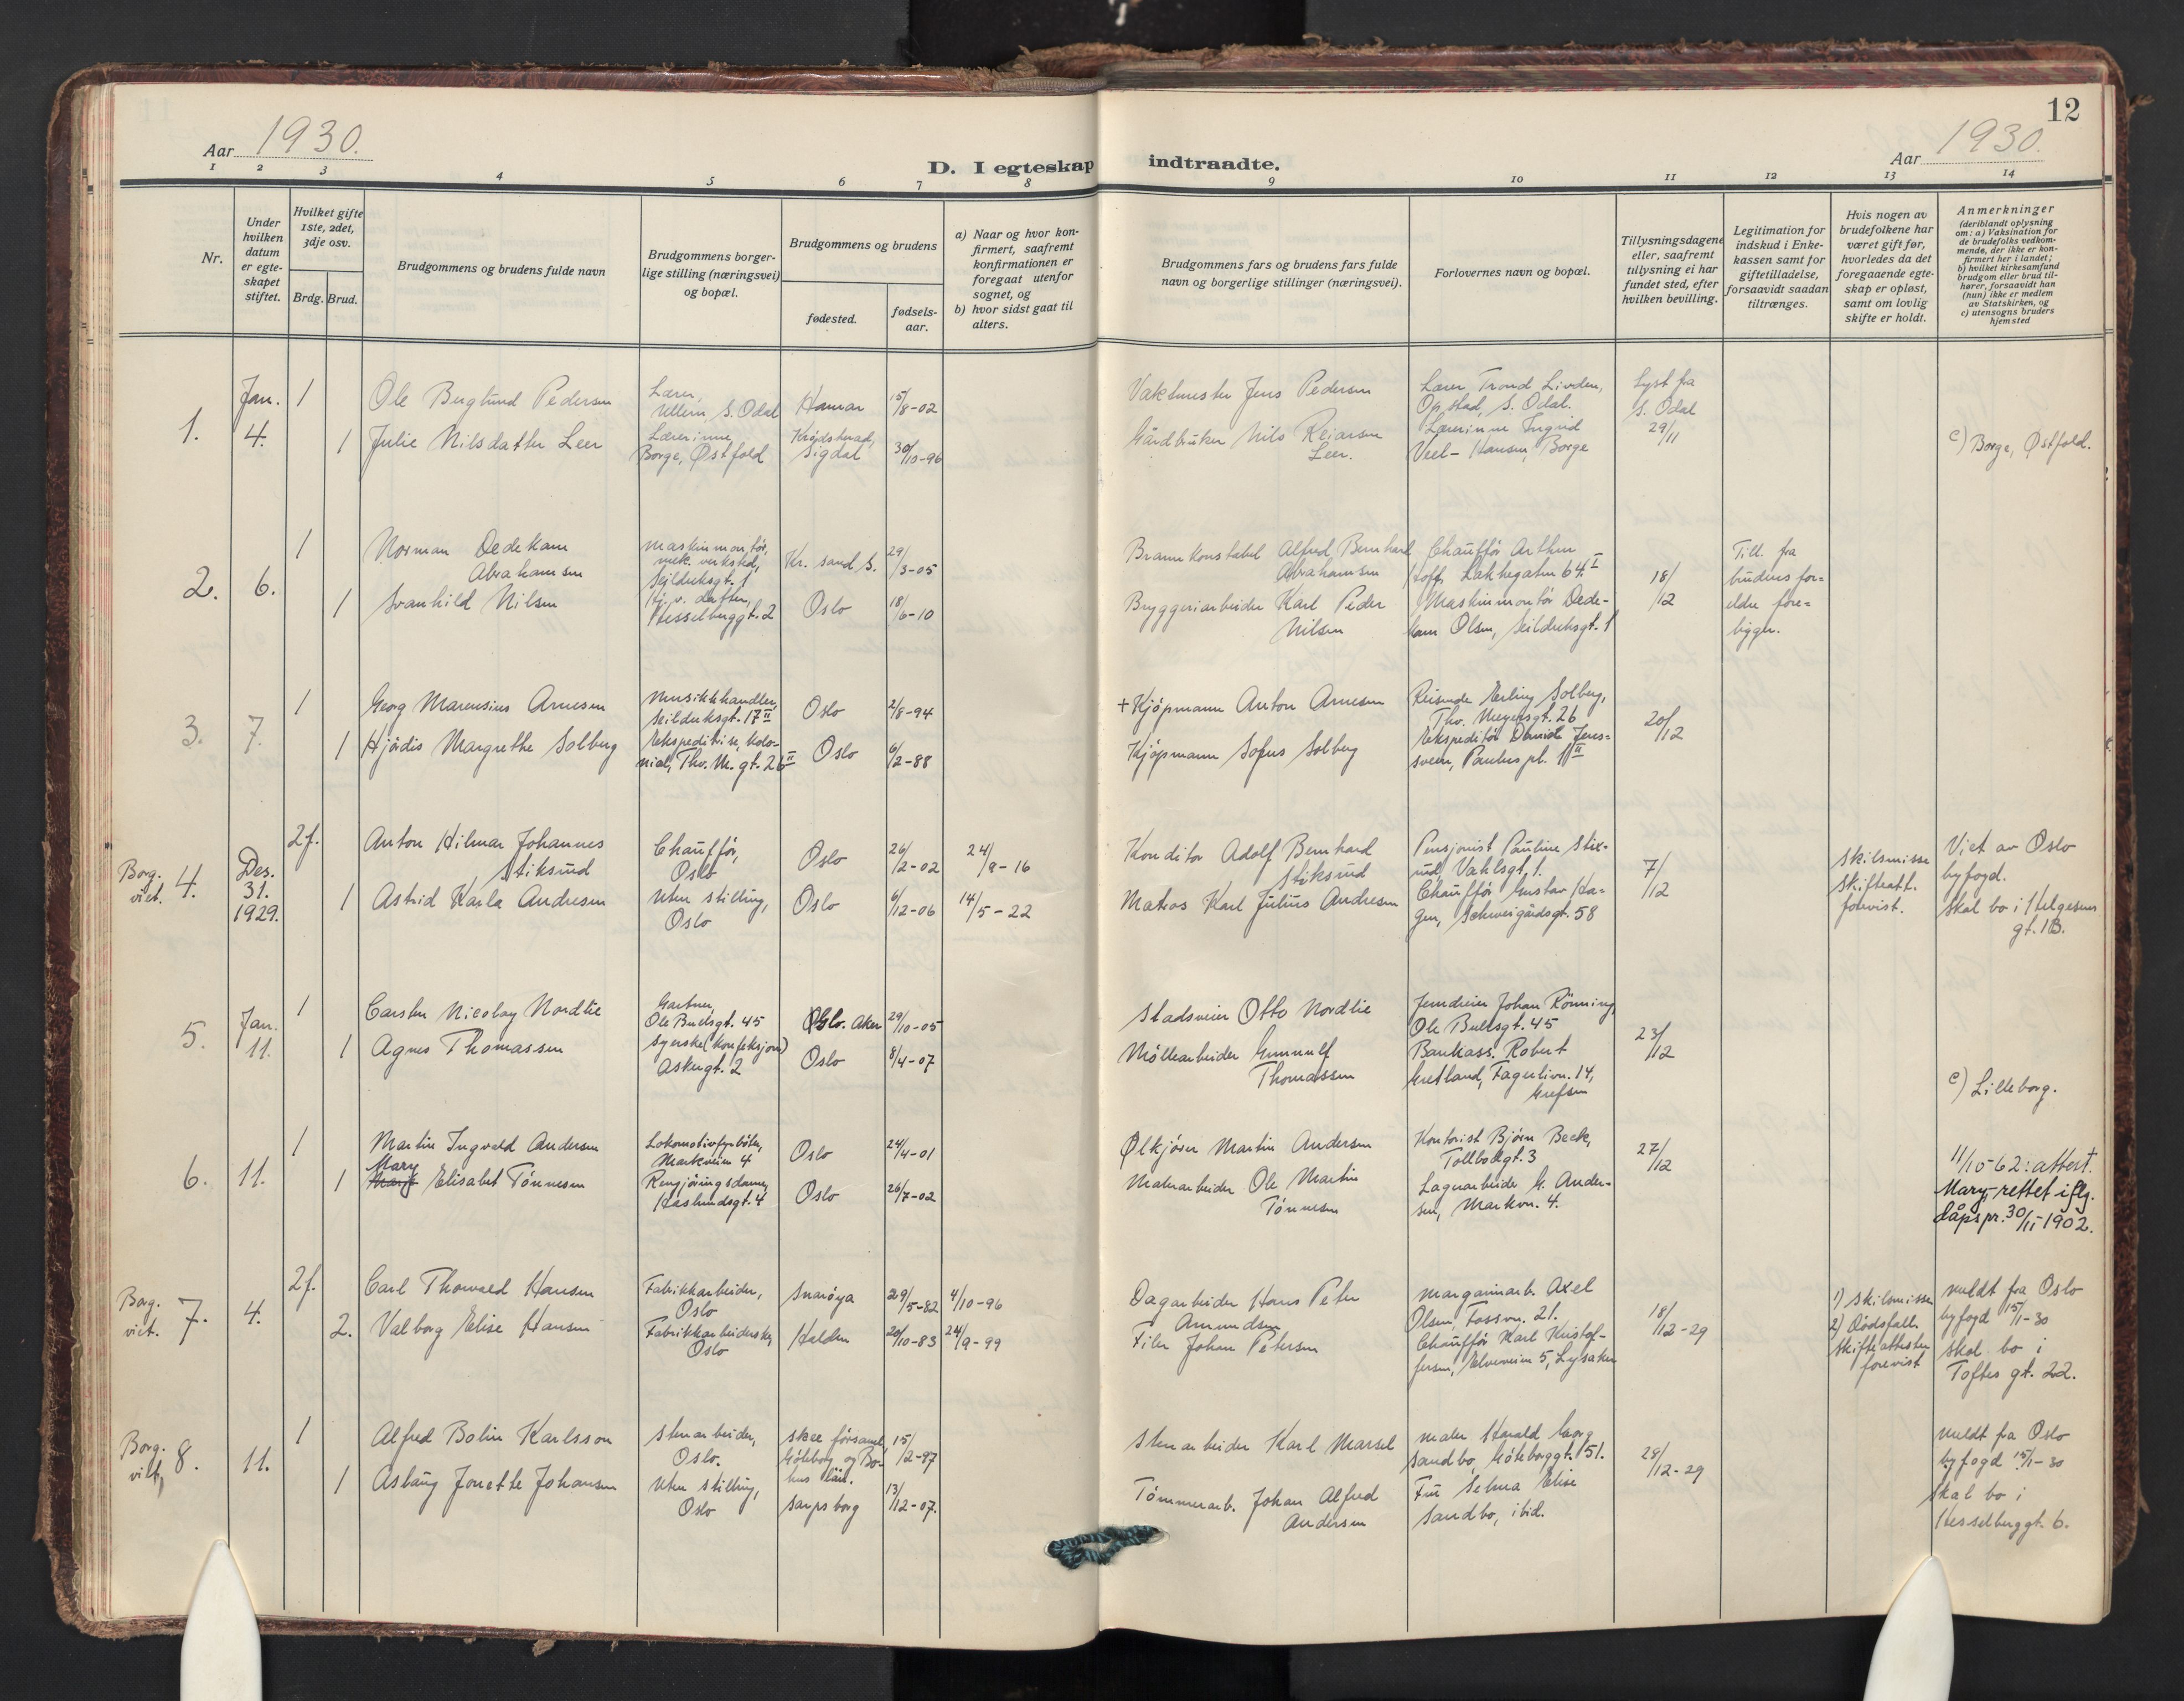 12
Aar 1930.
D. I egteskap indtraadte.
Aar 1930.
1 2 3 4 5 6 7 8 9 10 11 12 13 14
Nr.
Under
hvilken
datum
er egte-
skapet
stiftet.
Hvilket gifte
1ste, 2det,
3dje osv.
Brdg. Brud.
Brudgommens og brudens fulde navn
Brudgommens borger-
lige stilling (næringsvei)
og bopæl.
Brudgommens og brudens
fødested.
fødsels-
aar.
a) Naar og hvor kon-
firmert, saafremt
konfirmationen er
foregaat utenfor
sognet, og
b) hvor sidst gaat til
alters.
Brudgommens fars og brudens fars fulde
navn og borgerlige stillinger (næringsvei).
Forlovernes navn og bopæl.
Tillysningsdagene
eller, saafremt
tillysning ei har
fundet sted, efter
hvilken bevilling.
Legitimation for
indskud i Enke-
kassen samt for
giftetilladelse,
forsaavidt saadan
tiltrænges.
Hvis nogen av
brudefolkene har
været gift før,
hvorledes da det
foregaaende egte-
skap er opløst,
samt om lovlig
skifte er holdt.
Anmerkninger
(deriblandt oplysning
om: a) Vaksination for
de brudefolks vedkom-
mende, der ikke er kon-
firmert her i landet;
b) hvilket kirkesamfund
brudgom eller brud til-
hører, forsaavidt han
(hun) ikke er medlem
av Statskirken, og
c) utensogns bruders
hjemsted
1.
Jan.
4.
1
Ole Berglund Pedersen
Lærer,
Ullern, S. Odal
Hamar
15/8-02
Vaktmester Jens Pedersen
Lærer Trond Linden,
Opstad, S. Odal.
Lyst fra
S. Odal
29/11
1
Julie Nilsdatter Leer
Lærerinne,
Borge, Østfold
Krødsherad,
Sigdal
30/10-96
Gårdbruker Nils Reiarsen
Leer.
Lærerinne Ingrid
Veel-Hansen, Borge
c) Borge, Østfold.
2.
6.
1
Norman Dedekam
Abrahamsen
Maskinmontør,
mek. verksted,
Seilduksgt. 1
Kr. sand S.
29/3-05
Brannkonstabel Alfred Bernhard
Abrahamsen
Chauffør Arthur
Hoff, Lakkegaten 64 I
18/12
Till. fra
brudens for=
eldre fore=
ligger.
1
Svanhild Nilsen
Hj. v. datter,
Hesselberggt. 2
Oslo
18/6-10
Bryggeriarbeider Karl Peder
Nilsen
Maskinmontør Dede-
kam Olsen, Seilduksgt. 1
3.
7.
1
Georg Marensius Arnesen
Musikkhandler,
Seilduksgt. 17 II
Oslo
2/8-94
+ Kjøpmann Anton Arnesen
Reisende Erling Solberg,
Thv. Meyersgt. 26
20/12
1
Hjördis Margrethe Solberg
Ekspeditrise, kolo-
nial, Thv. M. gt. 26 II
Oslo
6/2-88
Kjøpmann Sofus Solberg
Ekspeditør Daniel Jens=
sveen, Paulus pl. 1 II
Borg.
viet.
4.
Des.
31.
1929.
2f.
Anton Hilmar Johannes
Stiksrud
Chauffør,
Oslo
Oslo
26/2-02
24/9-16
Konditor Adolf Bernhard
Stiksrud
Pensjonist Pauline Stix-
rud, Vahlsgt. 1.
7/12
Skilsmisse
Skifteatt.
forevist.
Viet av Oslo
byfogd.
Skal bo i Helgesens
gt. 1B.
1
Astrid Karla Andresen
Uten stilling,
Oslo
Oslo
6/12-06
14/5-22
Matros Karl Julius Andresen
Chauffør Gustav Ha-
gen, Schweigårdsgt. 58
5.
Jan.
11.
1
Carsten Nicolay Nordlie
Gartner,
Ole Bullsgt. 45
Oslo. Aker
29/10-05
Stadsveier Otto Nordlie
Jerndreier Johan Rønning,
Ole Bullsgt. 45
23/12
1
Agnes Thomassen
Syerske (konfeksjon)
Askergt. 2
Oslo
8/4-07
Møllearbeider Gunnulf
Thomassen
Bankass. Robert
Gretland, Fagerlivn. 14,
Grefsen
c) Lilleborg.
6.
11.
1
Martin Ingvald Andersen
Lokomotivfyrbøter,
Markveien 4
Oslo
24/4-01
Ølkjører Martin Andersen
Kontorist Bjørn Beck,
Tollbodgt. 3
27/12
1
Mary
Elisabet Tønnesen
Rengjøringsdame,
Haslundsgt. 4
Oslo
26/7-02
Malerarbeider Ole Martin
Tønnesen
Lagerarbeider G. Ander-
sen, Markvn. 4.
11/10-62: attest.
Mary, rettet iflg.
dåpspr. 30/11-1902.
Borg.
viet.
7.
4.
2f.
Carl Thorvald Hansen
Fabrikkarbeider,
Oslo
Snarøya
29/5-82
4/10-96
Dagarbeider Hans Peter
Amundsen
Margarinarb. Axel
Olsen, Fossvn. 21.
18/12-29
1) Skilsmisse
2) Dødsfall.
Skifteattester
forevist
meldt fra Oslo
byfogd 15/1-30
skal bo i
Toftes gt. 22.
2.
Valborg Elise Hansen
Fabrikkarbeiderske,
Oslo
Halden
20/10-83
24/9-99
Filer Johan Petersen
Chauffør Karl Kristof-
fersen, Elveveien 5, Lysaker
Borg.
viet,
8.
11.
1
Alfred Bolin Karlsson
Stenarbeider,
Oslo.
Skee församl,
Göteborg og Bo-
hus län.
15/2-97
Stenarbeider Karl Marsel
maler Harald Georg
Sandbo, Göteborggt. 51.
28/12-29
meldt fra Oslo
byfogd 15/1-30
skal bo i
Hesselberggt. 6.
1
Asbaug Jonette Johansen
Uten stilling,
Oslo
Sarpsborg
13/12-07.
Tømmerarb. Johan Alfred
Andersen
Fru Selma Elise
Sandbo, ibid.